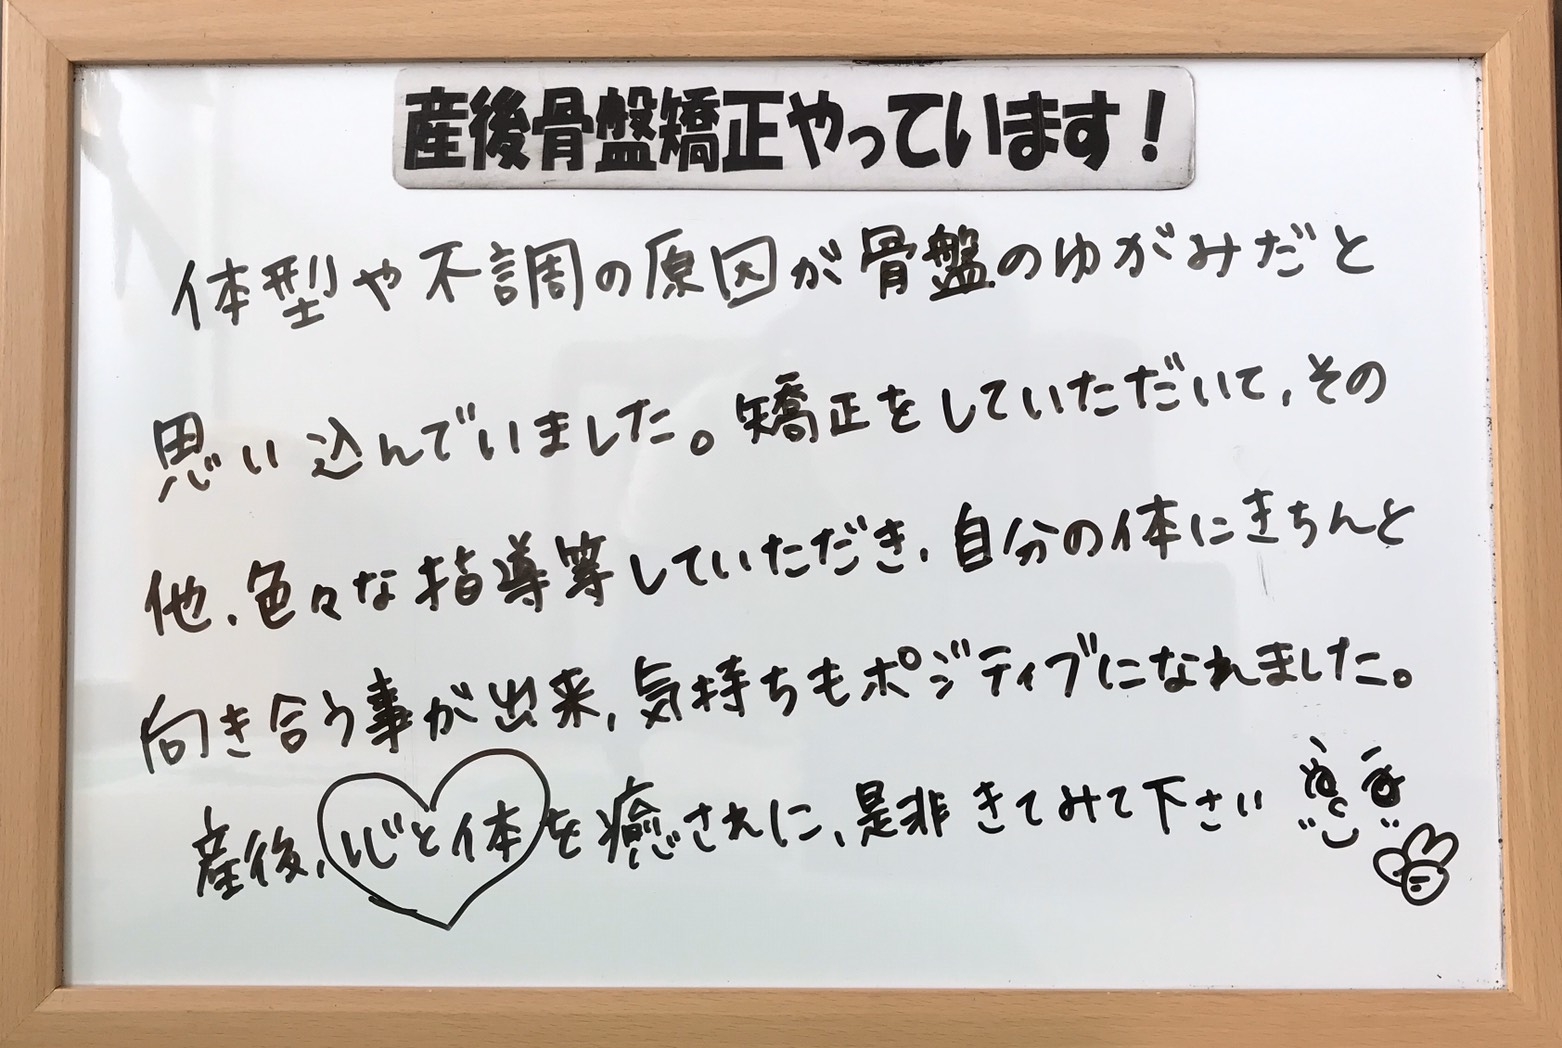 産後骨盤矯正やっています！
体型や不調の原因が骨盤のゆがみだと
思い込んでいました。矯正をしていただいて、その
他、色々な指導等していただき、自分の体にきちんと
向き合う事が出来、気持ちもポジティブになれました。
産後、心と体を癒されに、是非きてみて下さい